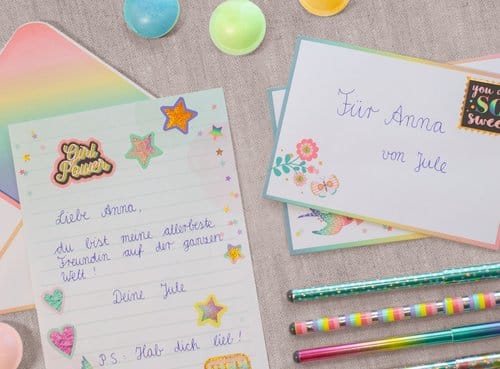 Girl
Power
Liebe Anna,
du bist meine allerbeste
Freundin auf der ganzen
Welt!
Deine Jule
P.S.: Hab dich lieb!
Für Anna
von Jule
you a
SO
swee